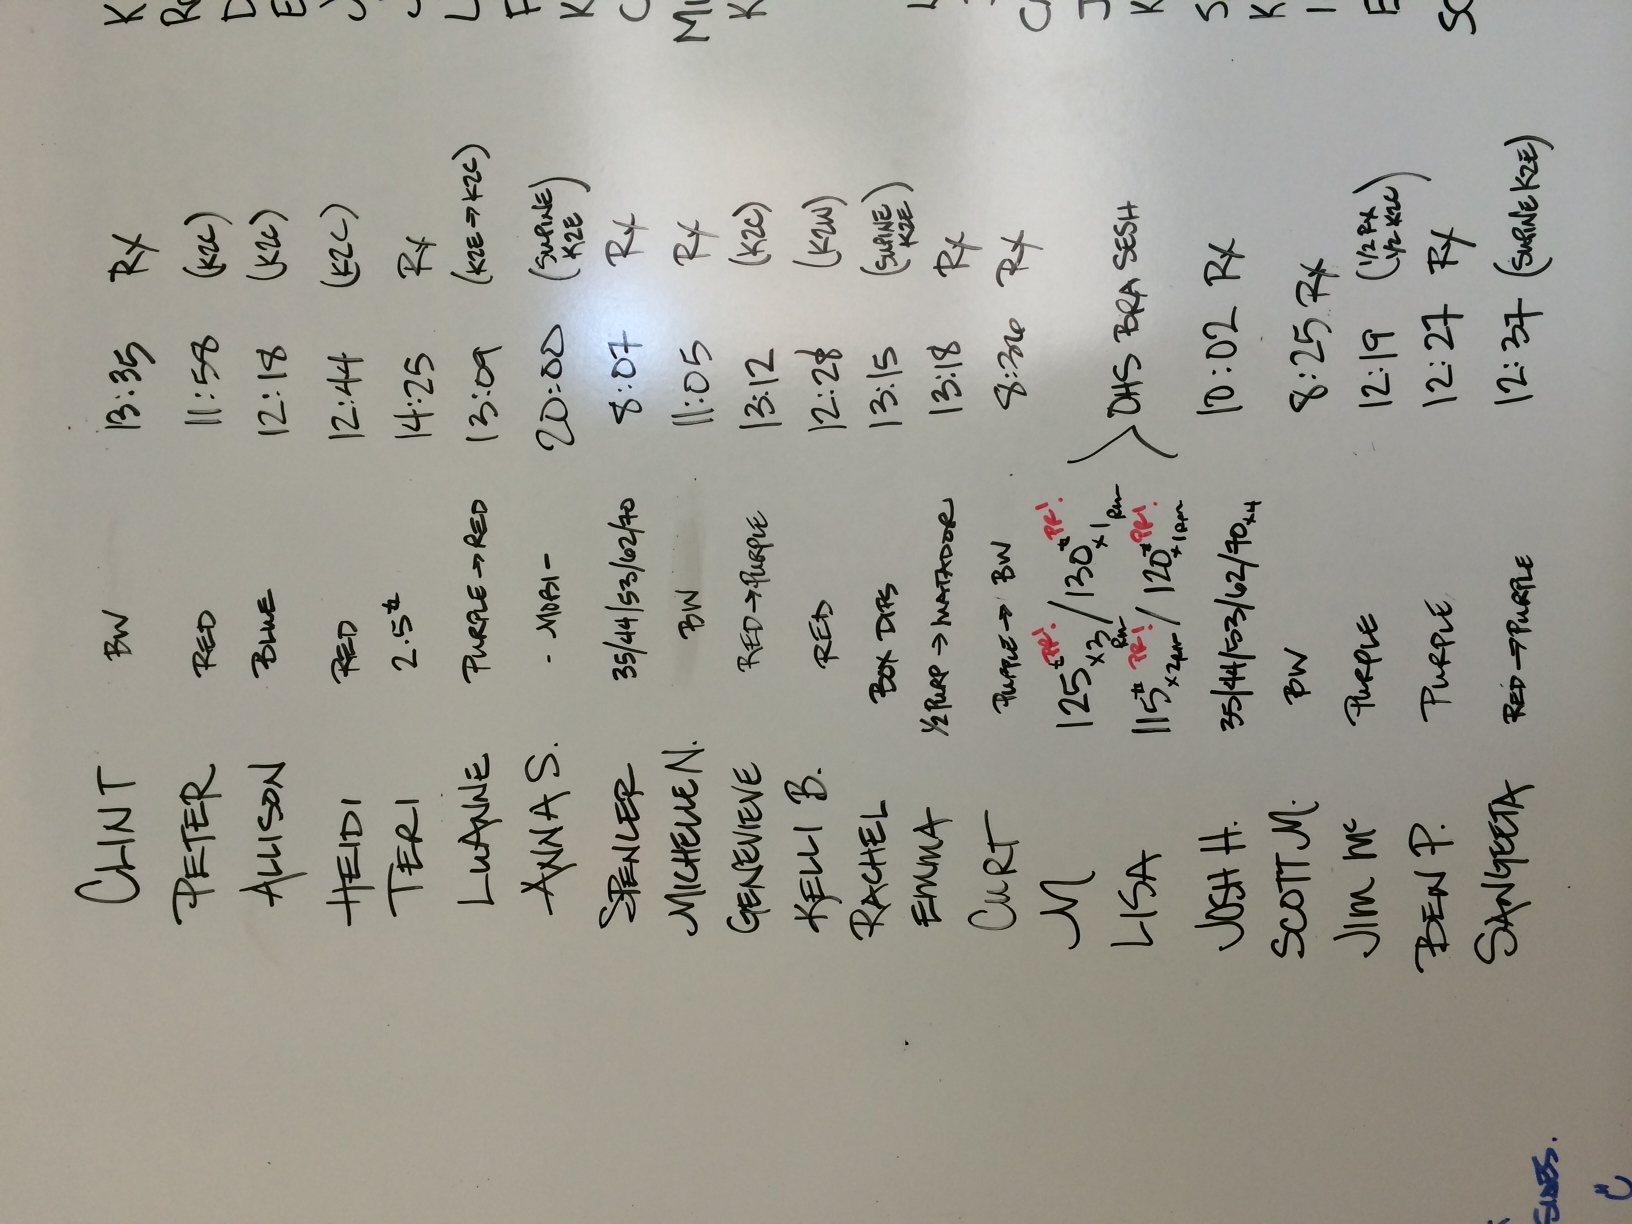 CLINT BW 13:35 Rx
PETER RED 11:58 (K2C)
ALLISON BLUE 12:18 (K2C)
HEIDI RED 12:44 (K2C)
TERI 2.5# 14:25 Rx
LUANNE PURPLE→RED 13:09 (K2E→K2C)
ANNA S. - MOBI - 20:00 (SUPINE K2E)
SPENCER 35/44/53/62/70 8:07 Rx
MICHELLE N. BW 11:05 Rx
GENEVIEVE RED→PURPLE 13:12 (K2C)
KELLI B. RED 12:28 (K2W)
RACHEL BOX DIPS 13:15 (SUPINE K2E)
EMMA 1/2 PURP→MATADOR 13:18 Rx
CURT PURPLE→BW 8:36 Rx
M 125# PR! x3RM / 130# PR! x1RM
LISA 115# PR! x2RM / 120# PR! x1RM
} OHS BRA SESH
JOSH H. 35/44/53/62/70x4 10:02 Rx
SCOTT M. BW 8:25 Rx
JIM Mc PURPLE 12:19 (1/2 Rx 1/2 K2C)
BEN P. PURPLE 12:27 Rx
SANGEETA RED→PURPLE 12:37 (SUPINE K2E)
SIDES.